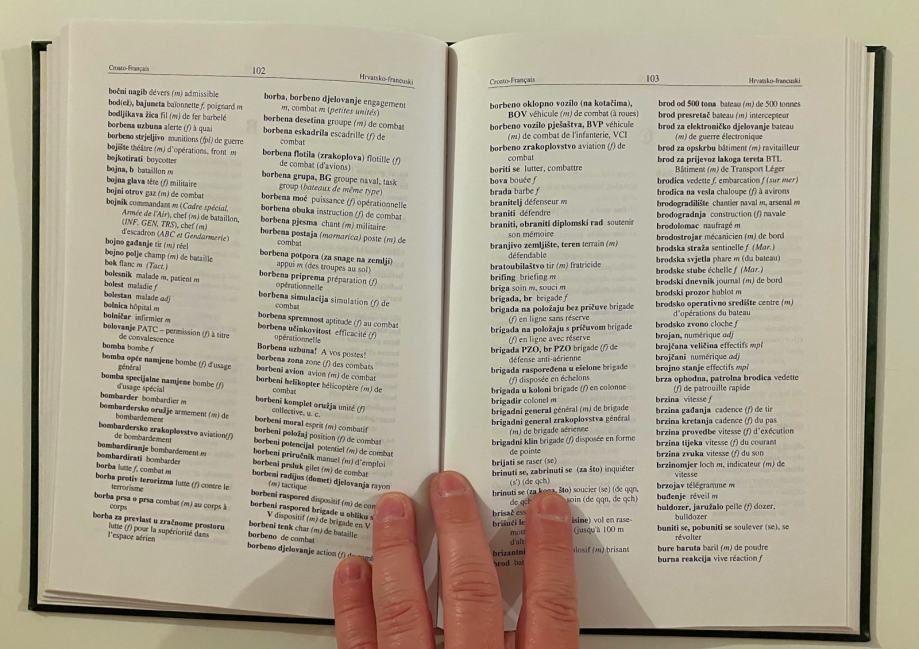 Croato-Français
102
Hrvatsko-francuski
bočni nagib dévers (m) admissible
bod(ež), bajuneta baïonnette f, poignard m
bodljikava žica fil (m) de fer barbelé
borbena uzbuna alerte (f) à quai
borbeno strjeljivo munitions (fpl) de guerre
bojište théâtre (m) d'opérations, front m
bojkotirati boycotter
bojna, b bataillon m
bojna glava tête (f) militaire
bojni otrov gaz (m) de combat
bojnik commandant m (Cadre spécial,
Armée de l'Air), chef (m) de bataillon,
(INF, GEN, TRS), chef (m)
d'escadron (ABC et Gendarmerie)
bojno gađanje tir (m) réel
bojno polje champ (m) de bataille
bok flanc m (Tact.)
bolesnik malade m, patient m
bolest maladie f
bolestan malade adj
bolnica hôpital m
bolničar infirmier m
bolovanje PATC – permission (f) à titre
de convalescence
bomba bombe f
bomba opće namjene bombe (f) d'usage
général
bomba specijalne namjene bombe (f)
d'usage spécial
bombarder bombardier m
bombardersko oružje armement (m) de
bombardement
bombardersko zrakoplovstvo aviation(f)
de bombardement
bombardiranje bombardement m
bombardirati bombarder
borba lutte f, combat m
borba protiv terorizma lutte (f) contre le
terrorisme
borba prsa o prsa combat (m) au corps à
corps
borba za prevlast u zračnome prostoru
lutte (f) pour la supériorité dans
l'espace aérien
borba, borbeno djelovanje engagement
m, combat m (petites unités)
borbena desetina groupe (m) de combat
borbena eskadrila escadrille (f) de
combat
borbena flotila (zrakoplova) flotille (f)
de combat (d'avions)
borbena grupa, BG groupe naval, task
group (bateaux de même type)
borbena moć puissance (f) opérationnelle
borbena obuka instruction (f) de combat
borbena pjesma chant (m) militaire
borbena postaja (mornarica) poste (m) de
combat
borbena potpora (za snage na zemlji)
appui m (des troupes au sol)
borbena priprema préparation (f)
opérationnelle
borbena simulacija simulation (f) de
combat
borbena spremnost aptitude (f) au combat
borbena učinkovitost efficacité (f)
opérationnelle
Borbena uzbuna! A vos postes!
borbena zona zone (f) des combats
borbeni avion avion (m) de combat
borbeni helikopter hélicoptère (m) de
combat
borbeni komplet oružja unité (f)
collective, u. c.
borbeni moral esprit (m) combatif
borbeni položaj position (f) de combat
borbeni potencijal potentiel (m) de combat
borbeni priručnik manuel (m) d'emploi
borbeni prsluk gilet (m) de combat
borbeni radijus (domet) djelovanja rayon
(m) tactique
borbeni raspored dispositif (m) de
borbeni raspored brigade u obliku
V dispositif (m) de brigade en V
borbeni tenk char (m) de bataille
borbeno de combat
borbeno djelovanje action (f) de
Croato-Français
103
Hrvatsko-francuski
borbeno oklopno vozilo (na kotačima),
BOV véhicule (m) de combat (à roues)
borbeno vozilo pješaštva, BVP véhicule
(m) de combat de l'infanterie, VCI
borbeno zrakoplovstvo aviation (f) de
combat
boriti se lutter, combattre
bova bouée f
brada barbe f
branitelj défenseur m
braniti défendre
braniti, obraniti diplomski rad soutenir
son mémoire
branjivo zemljište, teren terrain (m)
défendable
bratoubilaštvo tir (m) fratricide
brifing briefing m
briga soin m, souci m
brigada, br brigade f
brigada na položaju bez pričuve brigade
(f) en ligne sans réserve
brigada na položaju s pričuvom brigade
(f) en ligne avec réserve
brigada PZO, br PZO brigade (f) de
défense anti-aérienne
brigada raspoređena u ešelone brigade
(f) disposée en échelons
brigada u koloni brigade (f) en colonne
brigadir colonel m
brigadni general général (m) de brigade
brigadni general zrakoplovstva général
(m) de brigade aérienne
brigadni klin brigade (f) disposée en forme
de pointe
brijati se raser (se)
brinuti se, zabrinuti se (za što) inquiéter
(s') (de qch)
brinuti se (za koga, što) soucier (se) (de qqn,
de qch), soin (de qqn, de qch)
brisač
brišući vol en rase-
(jusqu'à 100 m
brizantni explosif (m) brisant
brod
brod od 500 tona bateau (m) de 500 tonnes
brod presretač bateau (m) intercepteur
brod za elektroničko djelovanje bateau
(m) de guerre électronique
brod za opskrbu bâtiment (m) ravitailleur
brod za prijevoz lakoga tereta BTL
Bâtiment (m) de Transport Léger
brodica vedette f, embarcation f (sur mer)
brodica na vesla chaloupe (f) à avirons
brodogradilište chantier naval m, arsenal m
brodogradnja construction (f) navale
brodolomac naufragé m
brodostrojar mécanicien (m) de bord
brodska straža sentinelle f (Mar.)
brodska svjetla phare m (du bateau)
brodske stube échelle f (Mar.)
brodski dnevnik journal (m) de bord
brodski prozor hublot m
brodsko operativno središte centre (m)
d'opérations du bateau
brodsko zvono cloche f
brojan, numérique adj
brojčana veličina effectifs mpl
brojčani numérique adj
brojno stanje effectifs mpl
brza ophodna, patrolna brodica vedette
(f) de patrouille rapide
brzina vitesse f
brzina gađanja cadence (f) de tir
brzina kretanja cadence (f) du pas
brzina provedbe vitesse (f) d'exécution
brzina tijeka vitesse (f) du courant
brzina zvuka vitesse (f) du son
brzinomjer loch m, indicateur (m) de
vitesse
brzojav télégramme m
buđenje réveil m
buldozer, jaružalo pelle (f) dozer,
bulldozer
buniti se, pobuniti se soulever (se), se
révolter
bure baruta baril (m) de poudre
burna reakcija vive réaction f